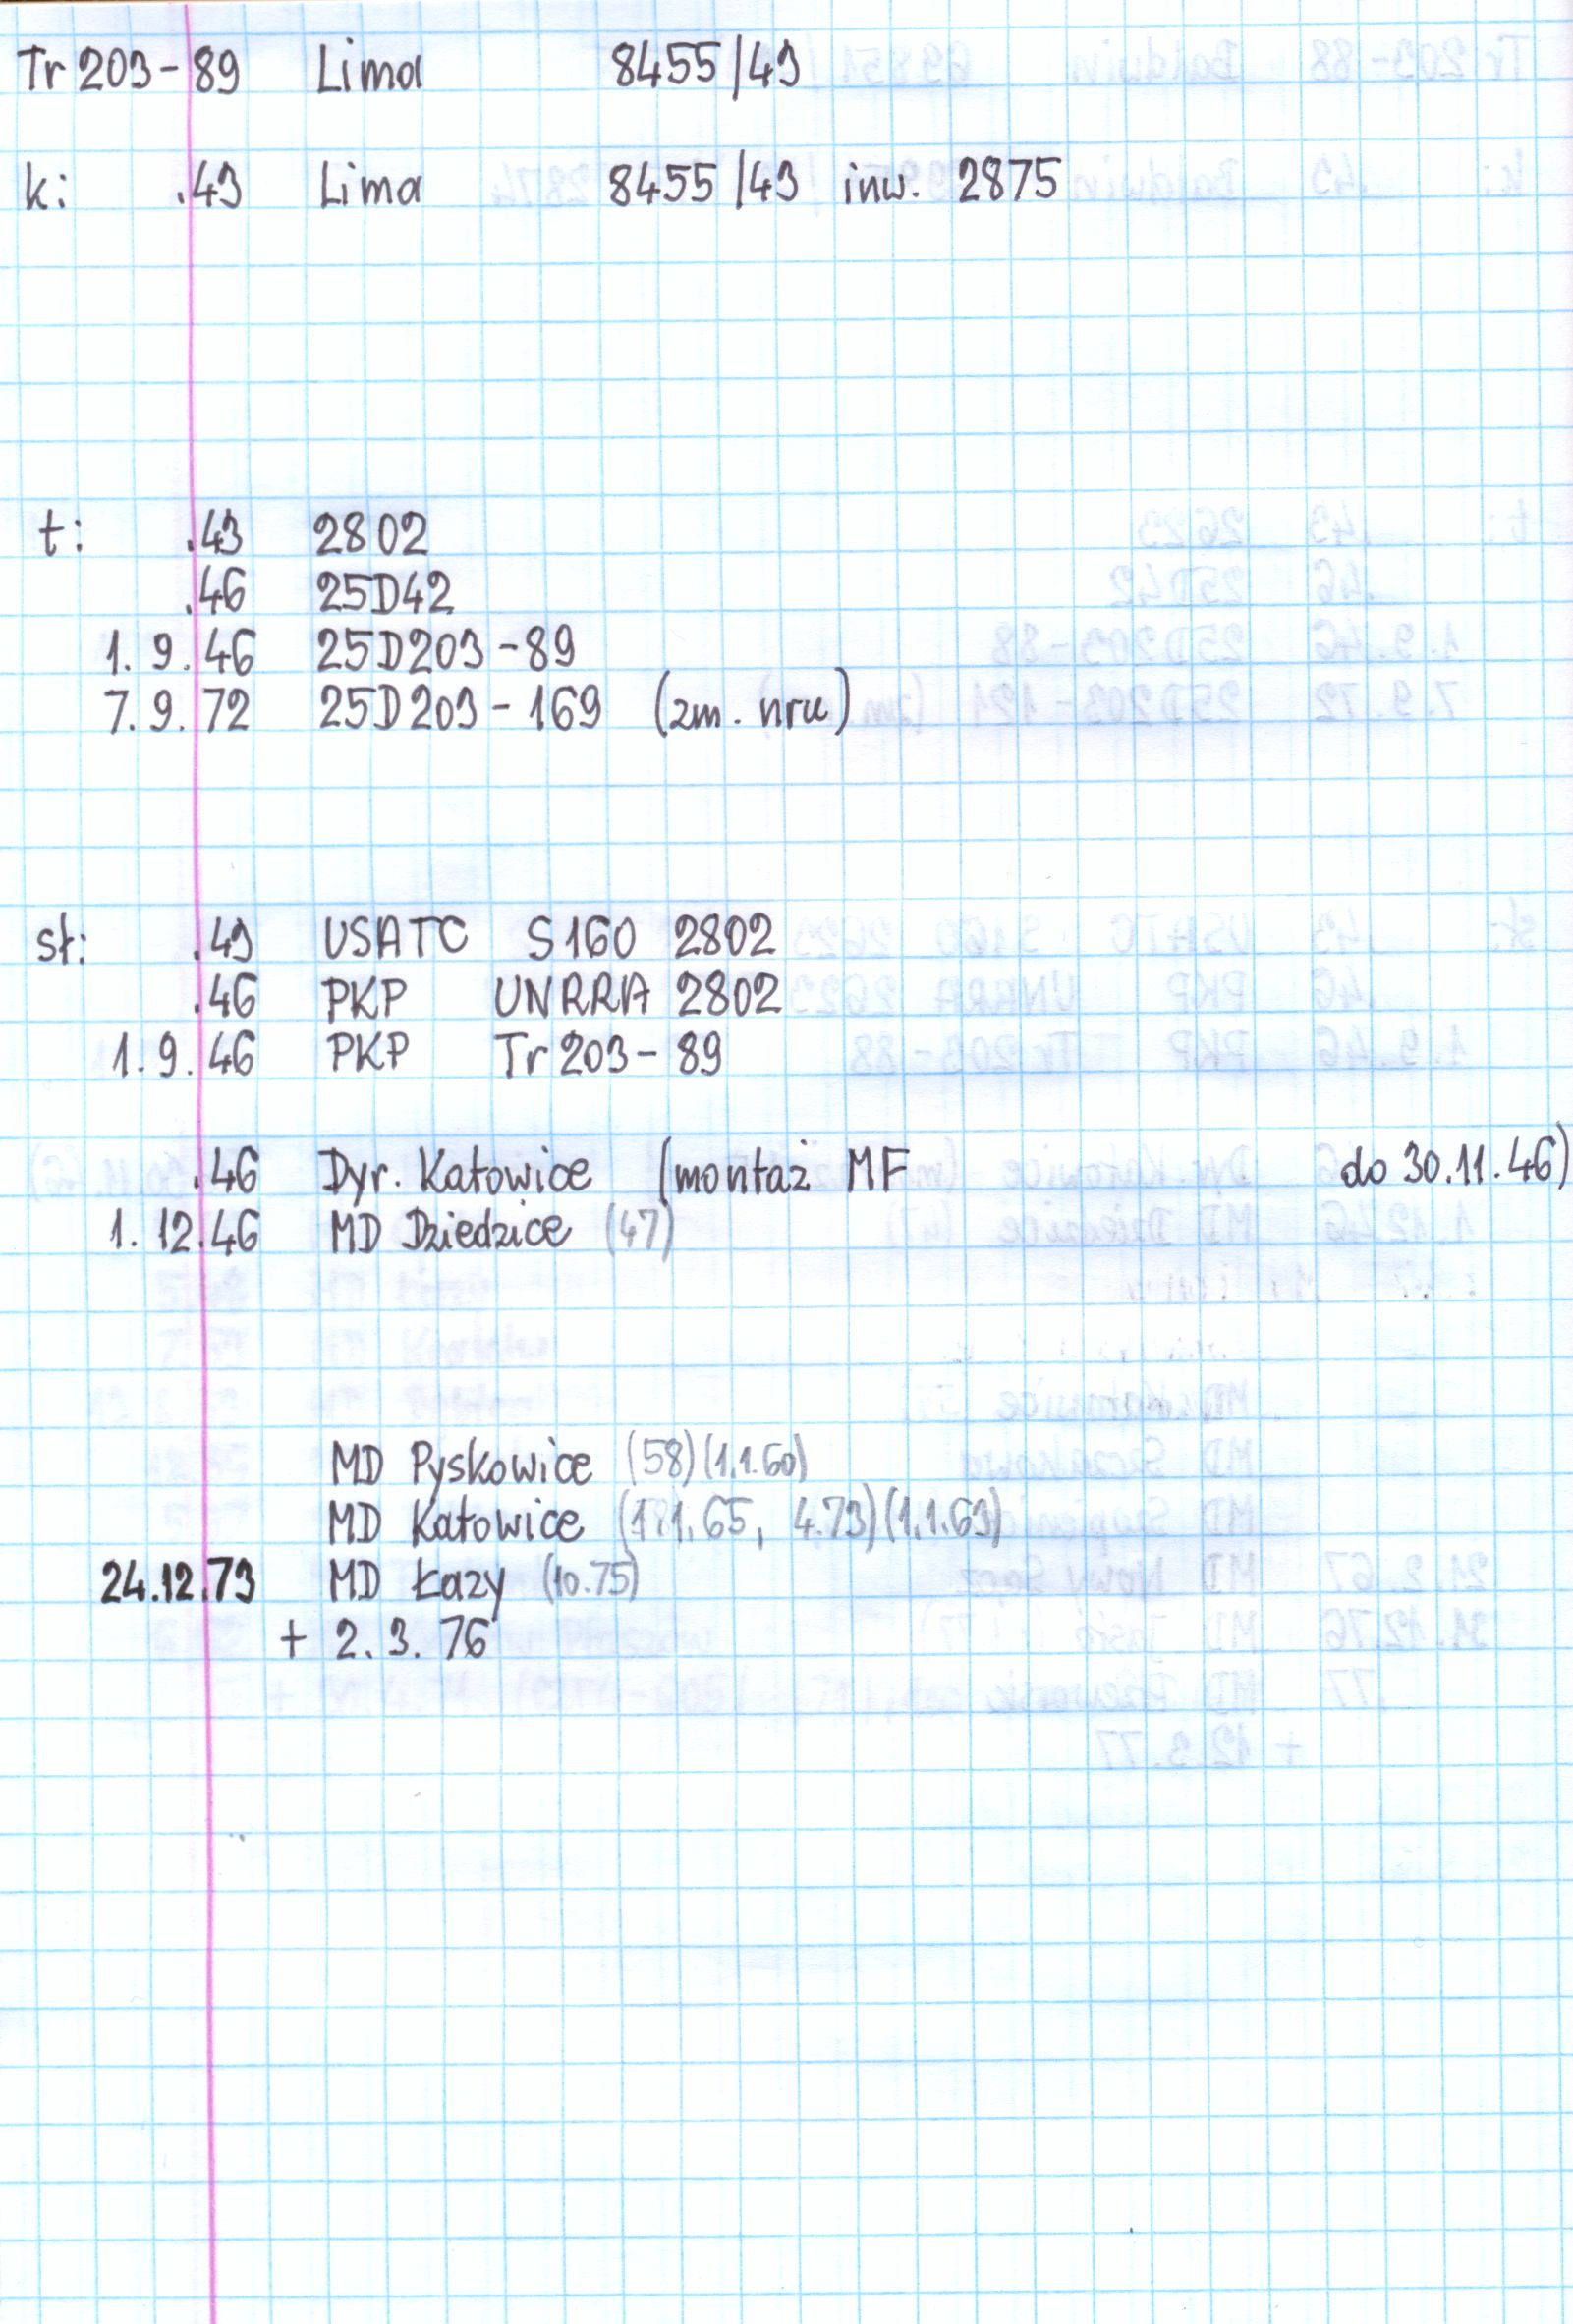 Tr 203-89 Lima 8455/43
k: .43 Lima 8455/43 inw. 2875
t: .43 2802
.46 25D42
1.9.46 25D203-89
7.9.72 25D203-169 (zm. nru)
sł: .43 USATC S160 2802
.46 PKP UNRRA 2802
1.9.46 PKP Tr 203-89
.46 Dyr. Katowice (montaż MF do 30.11.46)
1.12.46 MD Dziedzice (47)
MD Pyskowice (58) (1.1.60)
MD Katowice 4.73) (1.1.63)
24.12.73 MD Łazy (10.75)
+ 2.3.76